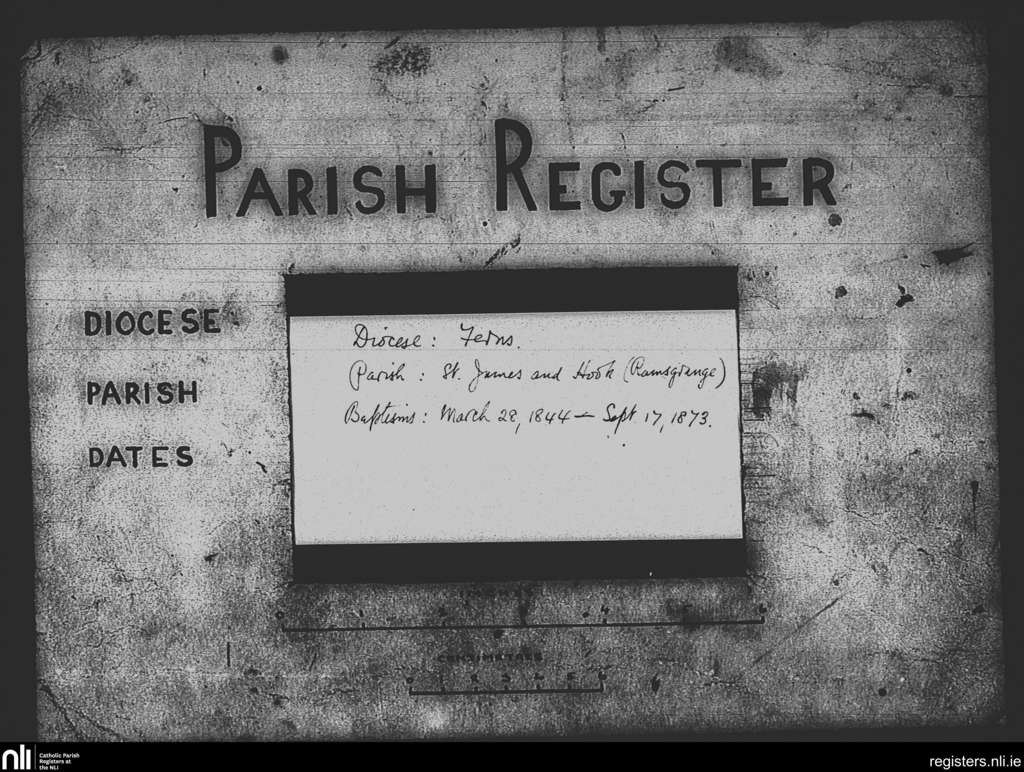 PARISH REGISTER
DIOCESE
PARISH
DATES
Diocese: Ferns.
Parish: St. James and Hook (Ramsgrange)
Baptisms: March 28, 1844 — Sept 17, 1873.
CENTIMETRES
nli
Catholic Parish
Registers at
the NLI
registers.nli.ie